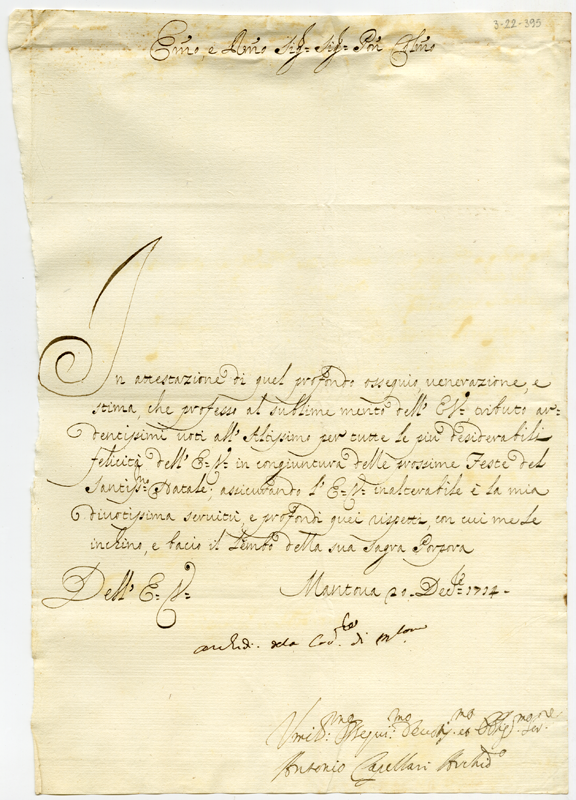 3-22-395
Emo, e Rmo Sigr Sigr Pron Colmo
In attestazione di quel profondo ossequio, venerazione, e
stima, che professo al sublime merito dell' E. V. tributo ar-
dentissimi voti all' Altissimo per tutte le più desiderabili
felicità dell' E. V. in congiuntura delle prossime Feste del
Santissmo Natale; assicurando l' E. V. inalterabile è la mia
divotissima servitù, e profondi quei rispetti, con cui me Le
inchino, e bacio il Lembo della sua Sagra Porpora
Dell' E. V.
Mantova 21. Decbe 1714.
Archid. della di
Umilmo Ossequimo Devotmo et Obligmo ser.
Antonio Capellari Archido